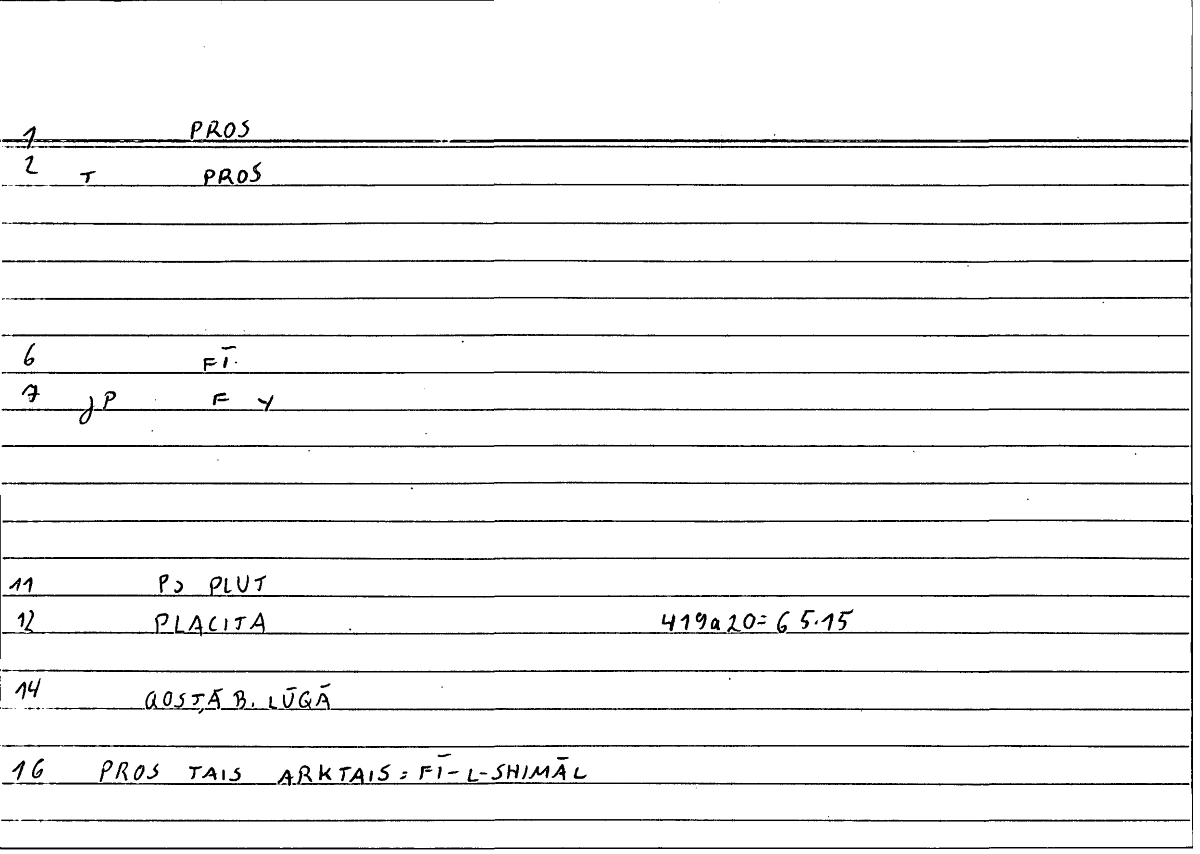 1 PROS
2 T PROS
6 FĪ.
7 jP F Y
11 Ps PLUT
12 PLACITA 419a20=65.15
14 QOSṬĀ B. LŪQĀ
16 PROS TAIS ARKTAIS = FĪ-L-SHIMĀL